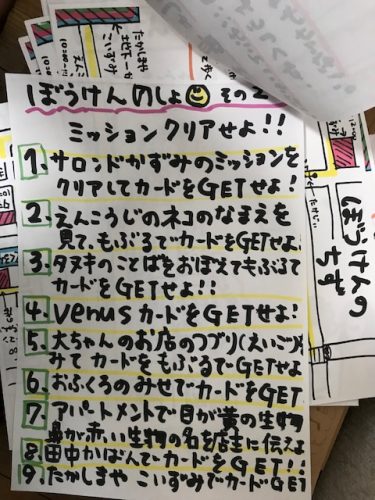 ぼうけんのしょ その2
ミッションクリアせよ!!
1. サロンドかずみのミッションを
クリアしてカードをGETせよ!
2. えんこうじのネコのなまえを
見て、もぶるでカードをGETせよ!
3. タヌキのことばをおぼえてもぶるで
カードをGETせよ!!
4. VenusカードをGETせよ!
5. 大ちゃんのお店のつづり(えいご)を
みて カードをもぶるでGETせよ
6. おふくろのみせでカードをGET
7. アパートメントで目が黄の生物
鼻が赤い生物の名を店主に伝えよ
8. 田中かばんでカードをGET!!
9. たかしまや こいずみでカードGET
ぼうけんの
ちず